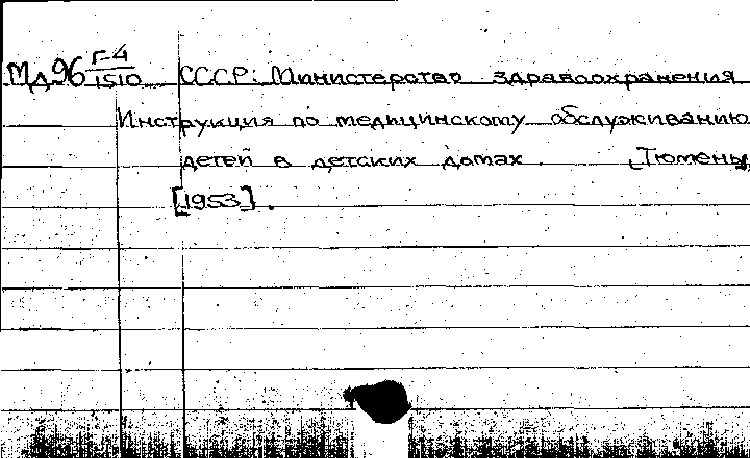 МД96 Г-4/1510 СССР. Министерство здравоохранения
Инструкция по медицинскому обслуживанию
детей в детских домах. [Тюмень,
[1953].